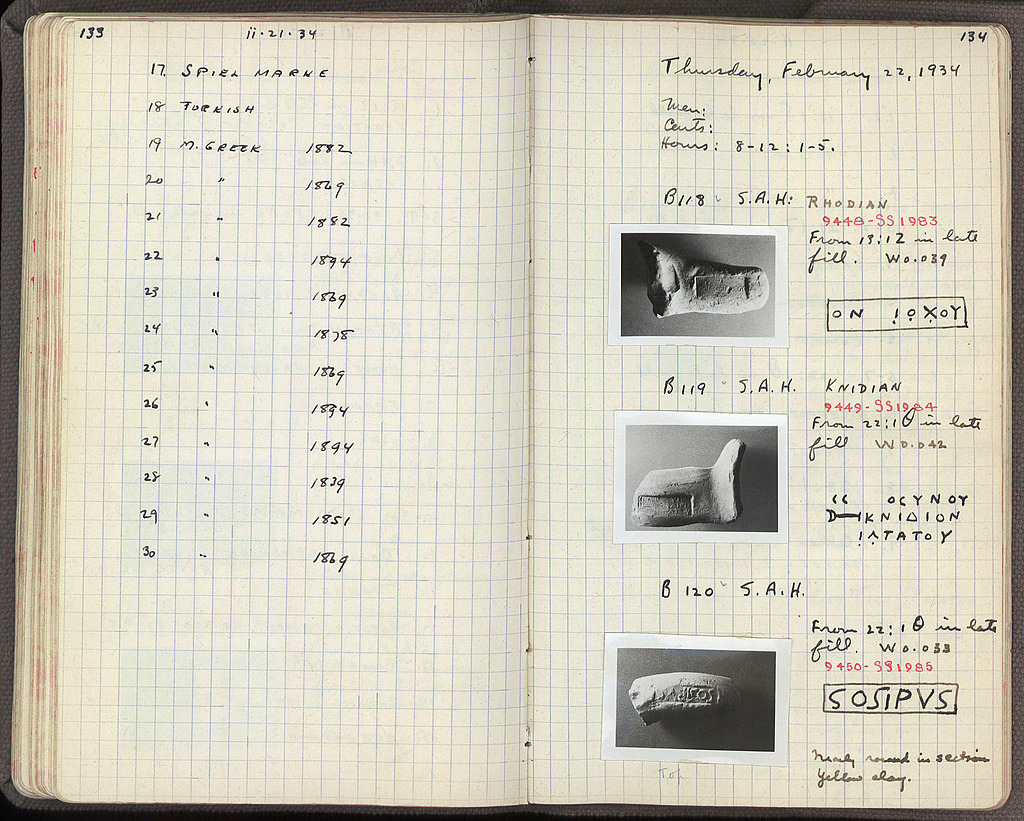 133 ii·21·34
17. SPIEL MARKE
18 TURKISH
19 M. GREEK 1882
20 " 1869
21 " 1882
22 " 1894
23 " 1869
24 " 1878
25 " 1869
26 " 1894
27 " 1894
28 " 1839
29 " 1851
30 " 1869
134
Thursday, February 22, 1934
Men:
Cents:
Hours: 8-12: 1-5.
B118 S.A.H: RHODIAN
9448-SS1983
From 13:12 in late
fill. W0.039
ON ΙΟΧΟΥ
B119 S.A.H. KNIDIAN
9449-SS1984
From 22:1Θ in late
fill W0.042
ΟϹΥΝΟΥ
ΚΝΙΔΙΟΝ
ΙΛΤΑΤΟΥ
B 120 S.A.H.
From 22:1Θ in late
fill. W0.033
9450-SS1985
SOSIPVS
Nearly round in section
Yellow clay.
Top